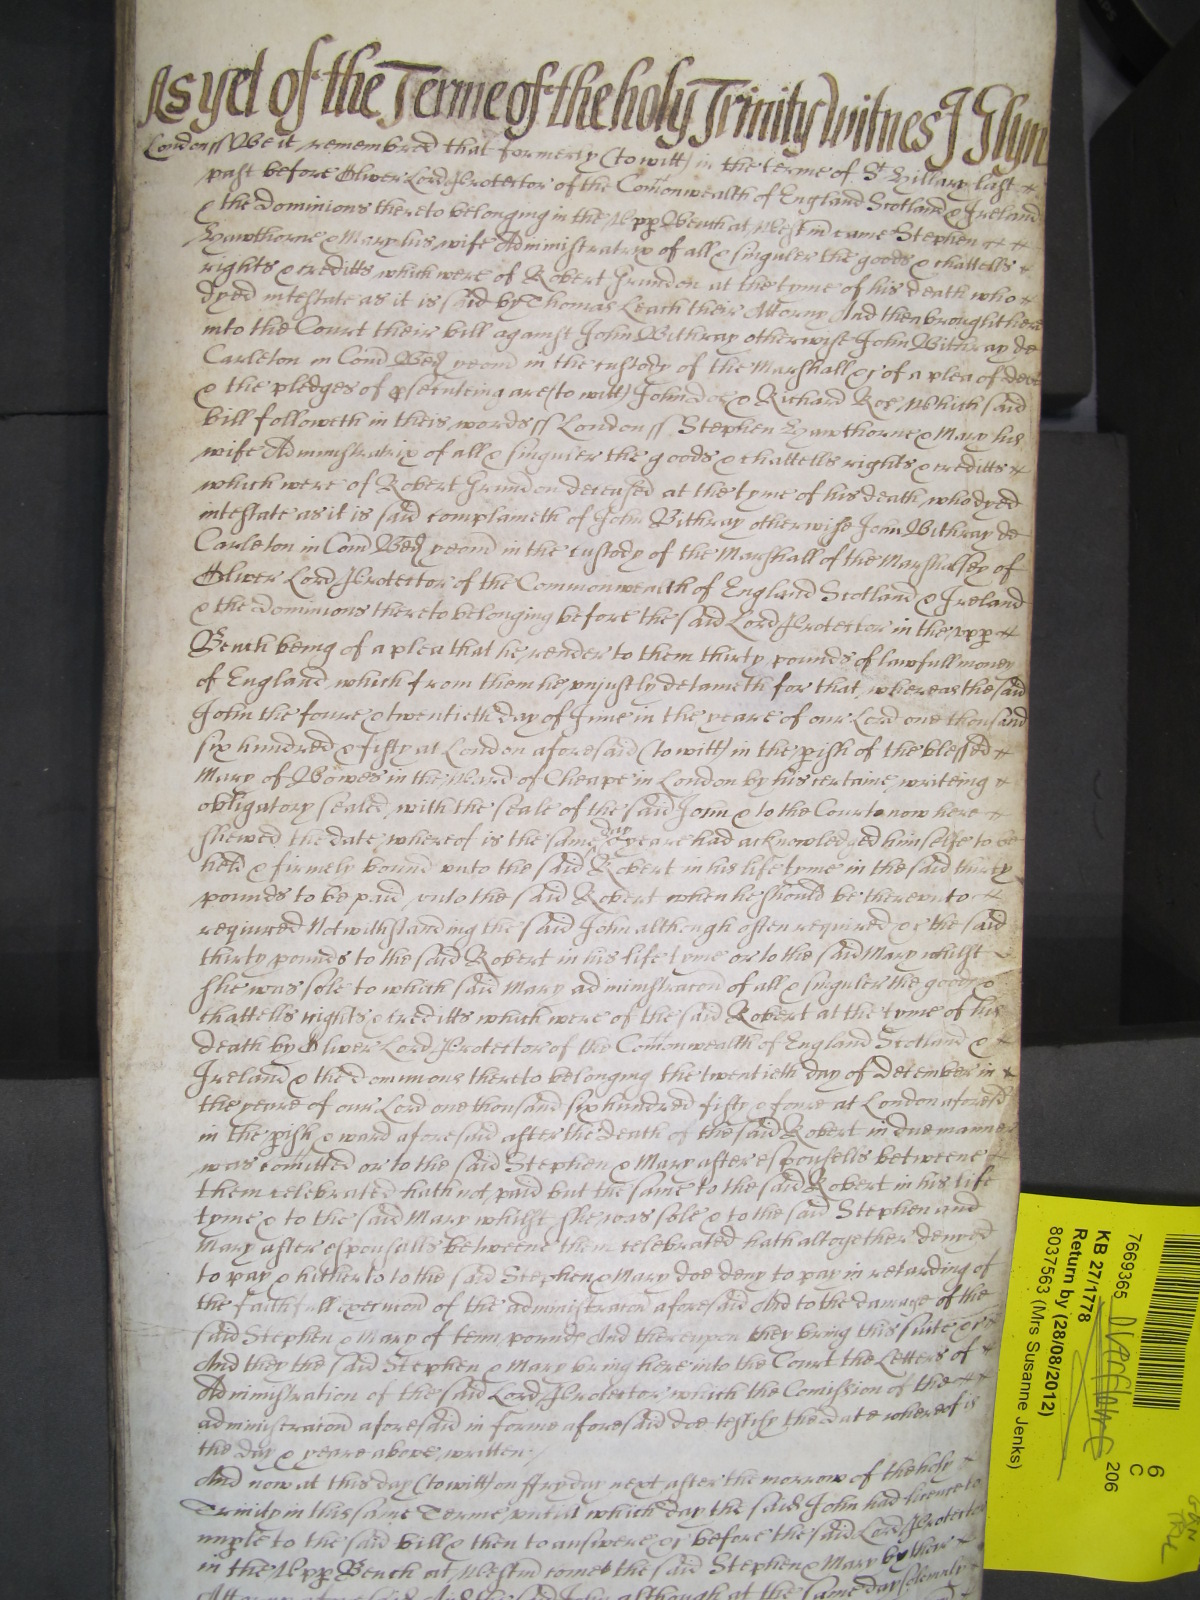 As yet of the Terme of the holy Trinity witnes J Glyn
London ss Be it remembred that formerly (to witt) in the terme of St Hillary last &
past before Oliver Lord Protector of the Comonwealth of England Scotland & Ireland
& the Dominions thereto belonging in the Upp Bench at Westm came Stephen & &
Hawthorne & Mary his wife Administratrix of all & singuler the goods & chattells &
rights & creditts which were of Robert Grindon at the tyme of his death who &
dyed intestate as it is said by Thomas Leach their Attorny And then brought here
into the Court their bill against John Withray otherwise John Withray de
Carleton in Com Bed yeom in the custody of the Marshall &c of a plea of debt
& the pledges of psecuteing are (to witt) John Doe & Richard Roe Which said
bill followeth in theis words ss London ss Stephen Hawthorne & Mary his
wife Administratrix of all & singuler the goods & chattells rights & creditts &
which were of Robert Grindon deceased at the tyme of his death who dyed
intestate as it is said complaineth of John Withray otherwise John Withray de
Carleton in Com Bed yeom in the custody of the Marshall of the Marshalsey of
Oliver Lord Protector of the Commonwealth of England Scotland & Ireland
& the Dominions thereto belonging before the said Lord Protector in the upp &
Bench being of a plea that he render to them thirty pounds of lawfull money
of England which from them he unjustly detaineth for that whereas the said
John the foure & twentieth day of June in the yeare of our Lord one thousand
six hundred & fifty at London aforesaid (to witt) in the pish of the blessed &
Mary of Bowes in the Ward of Cheape in London by his certaine writeing &
obligatory sealed with the seale of the said John & to the Court now here &
shewed the date whereof is the same day & yeare had acknowledged himselfe to be
held & firmely bound unto the said Robert in his life tyme in the said thirty
pounds to be paid unto the said Robert when he should be thereunto &
required Notwithstanding the said John although often required &c the said
thirty pounds to the said Robert in his life tyme or to the said Mary whilst
she was sole to which said Mary administracon of all & singuler the goods &
chattells rights & creditts which were of the said Robert at the tyme of his
death by Oliver Lord Protector of the Comonwealth of England Scotland & &
Ireland & the dominions thereto belonging the twentieth day of December in &
the yeare of our Lord one thousand six hundred fifty & foure at London aforesd
in the pish & ward aforesaid after the death of the said Robert in due manner
was comitted or to the said Stephen & Mary after espousells betweene &
them celebrated hath not paid but the same to the said Robert in his life
tyme & to the said Mary whilst she was sole & to the said Stephen and
Mary after espousalls betweene them celebrated hath altogether denyed
to pay & hitherto to the said Stephen & Mary doe deny to pay in retarding of
the faithfull execucon of the administracon aforesaid And to the damage of the
said Stephen & Mary of tenn pounds And thereupon they bring this suite &c
And they the said Stephen & Mary bring here into the Court the Letters of &
Administration of the said Lord Protector which the Comission of the & &
administracion aforesaid in forme aforesaid doe testify the date whereof is
the day & yeare above written
And now at this day (to witt) on Fryday next after the morrow of the holy &
Trinity in this same Terme untill which day the said John had licence to
imple to the said bill & then to answere &c before the said Lord Protector
in the Upp Bench at Westm comes the said Stephen & Mary by their &
Attorny aforesaid And the said John although at the same day solemnly
7669365
KB 27/1778
Return by (28/08/2012)
8037563 (Mrs Susanne Jenks)
206
6
C